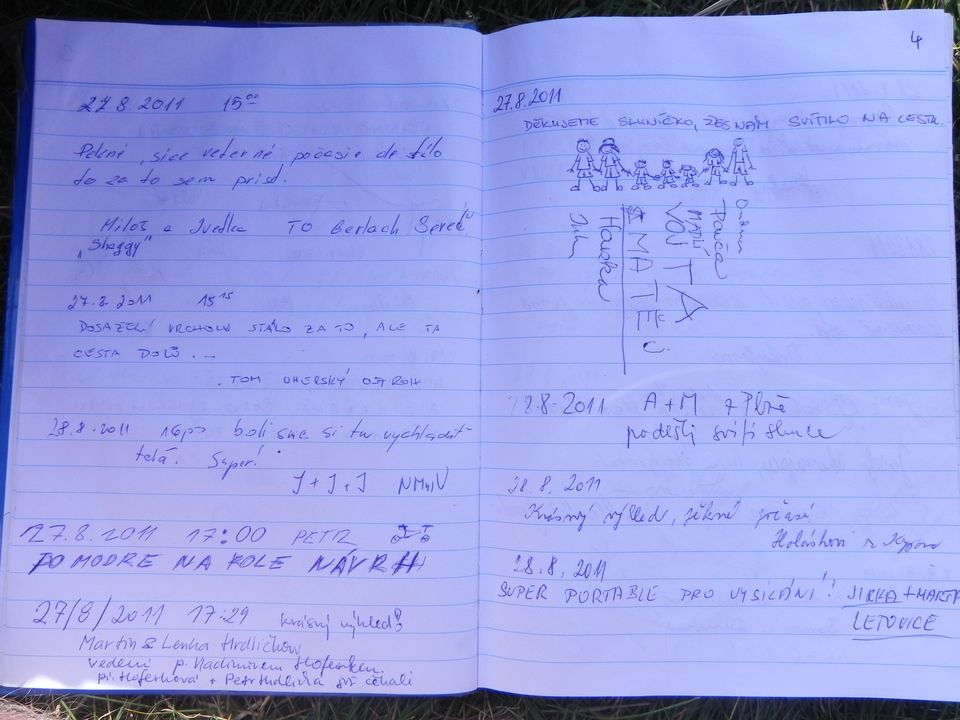 27.8.2011 15⁰⁰
Pekné, sice veterné počasie ale stálo
to za to sem prísť.
Miloš a Ivetka TO Gerlach Sereď
"Shaggy"
27.8.2011 15¹⁵
DOSAŽENÍ VRCHOLU STÁLO ZA TO, ALE TA
CESTA DOLŮ...
TOM UHERSKÝ OSTROH
28.8.2011 boli sme si tu vychladiť
telá. Super!
J + J + J NMnV
27.8.2011 17:00 PETR
PO MODRE NA KOLE NÁVRH
27/8/2011 17:29 krásný výhled?
Martin & Lenka Hrdličkovi
vedeni p. Hoferkem.
př. Hoferková + Petr Hrdlička čekali
4
27.8.2011
DĚKUJEME SLUNÍČKO, ŽES NÁM SVÍTILO NA CESTU.
Ondra
Pavča
MADLÍ
VOJTA
MATĚJ
Hanka
28.8.2011 A + M z Plzně
poděšli svíjí slunce
28.8.2011
Krásný výhled, pěkné počasí
Holáskovi z Kyjova
28.8.2011
SUPER PORTABLE PRO VYSÍLÁNÍ! JIRKA + MARTA
LETOVICE